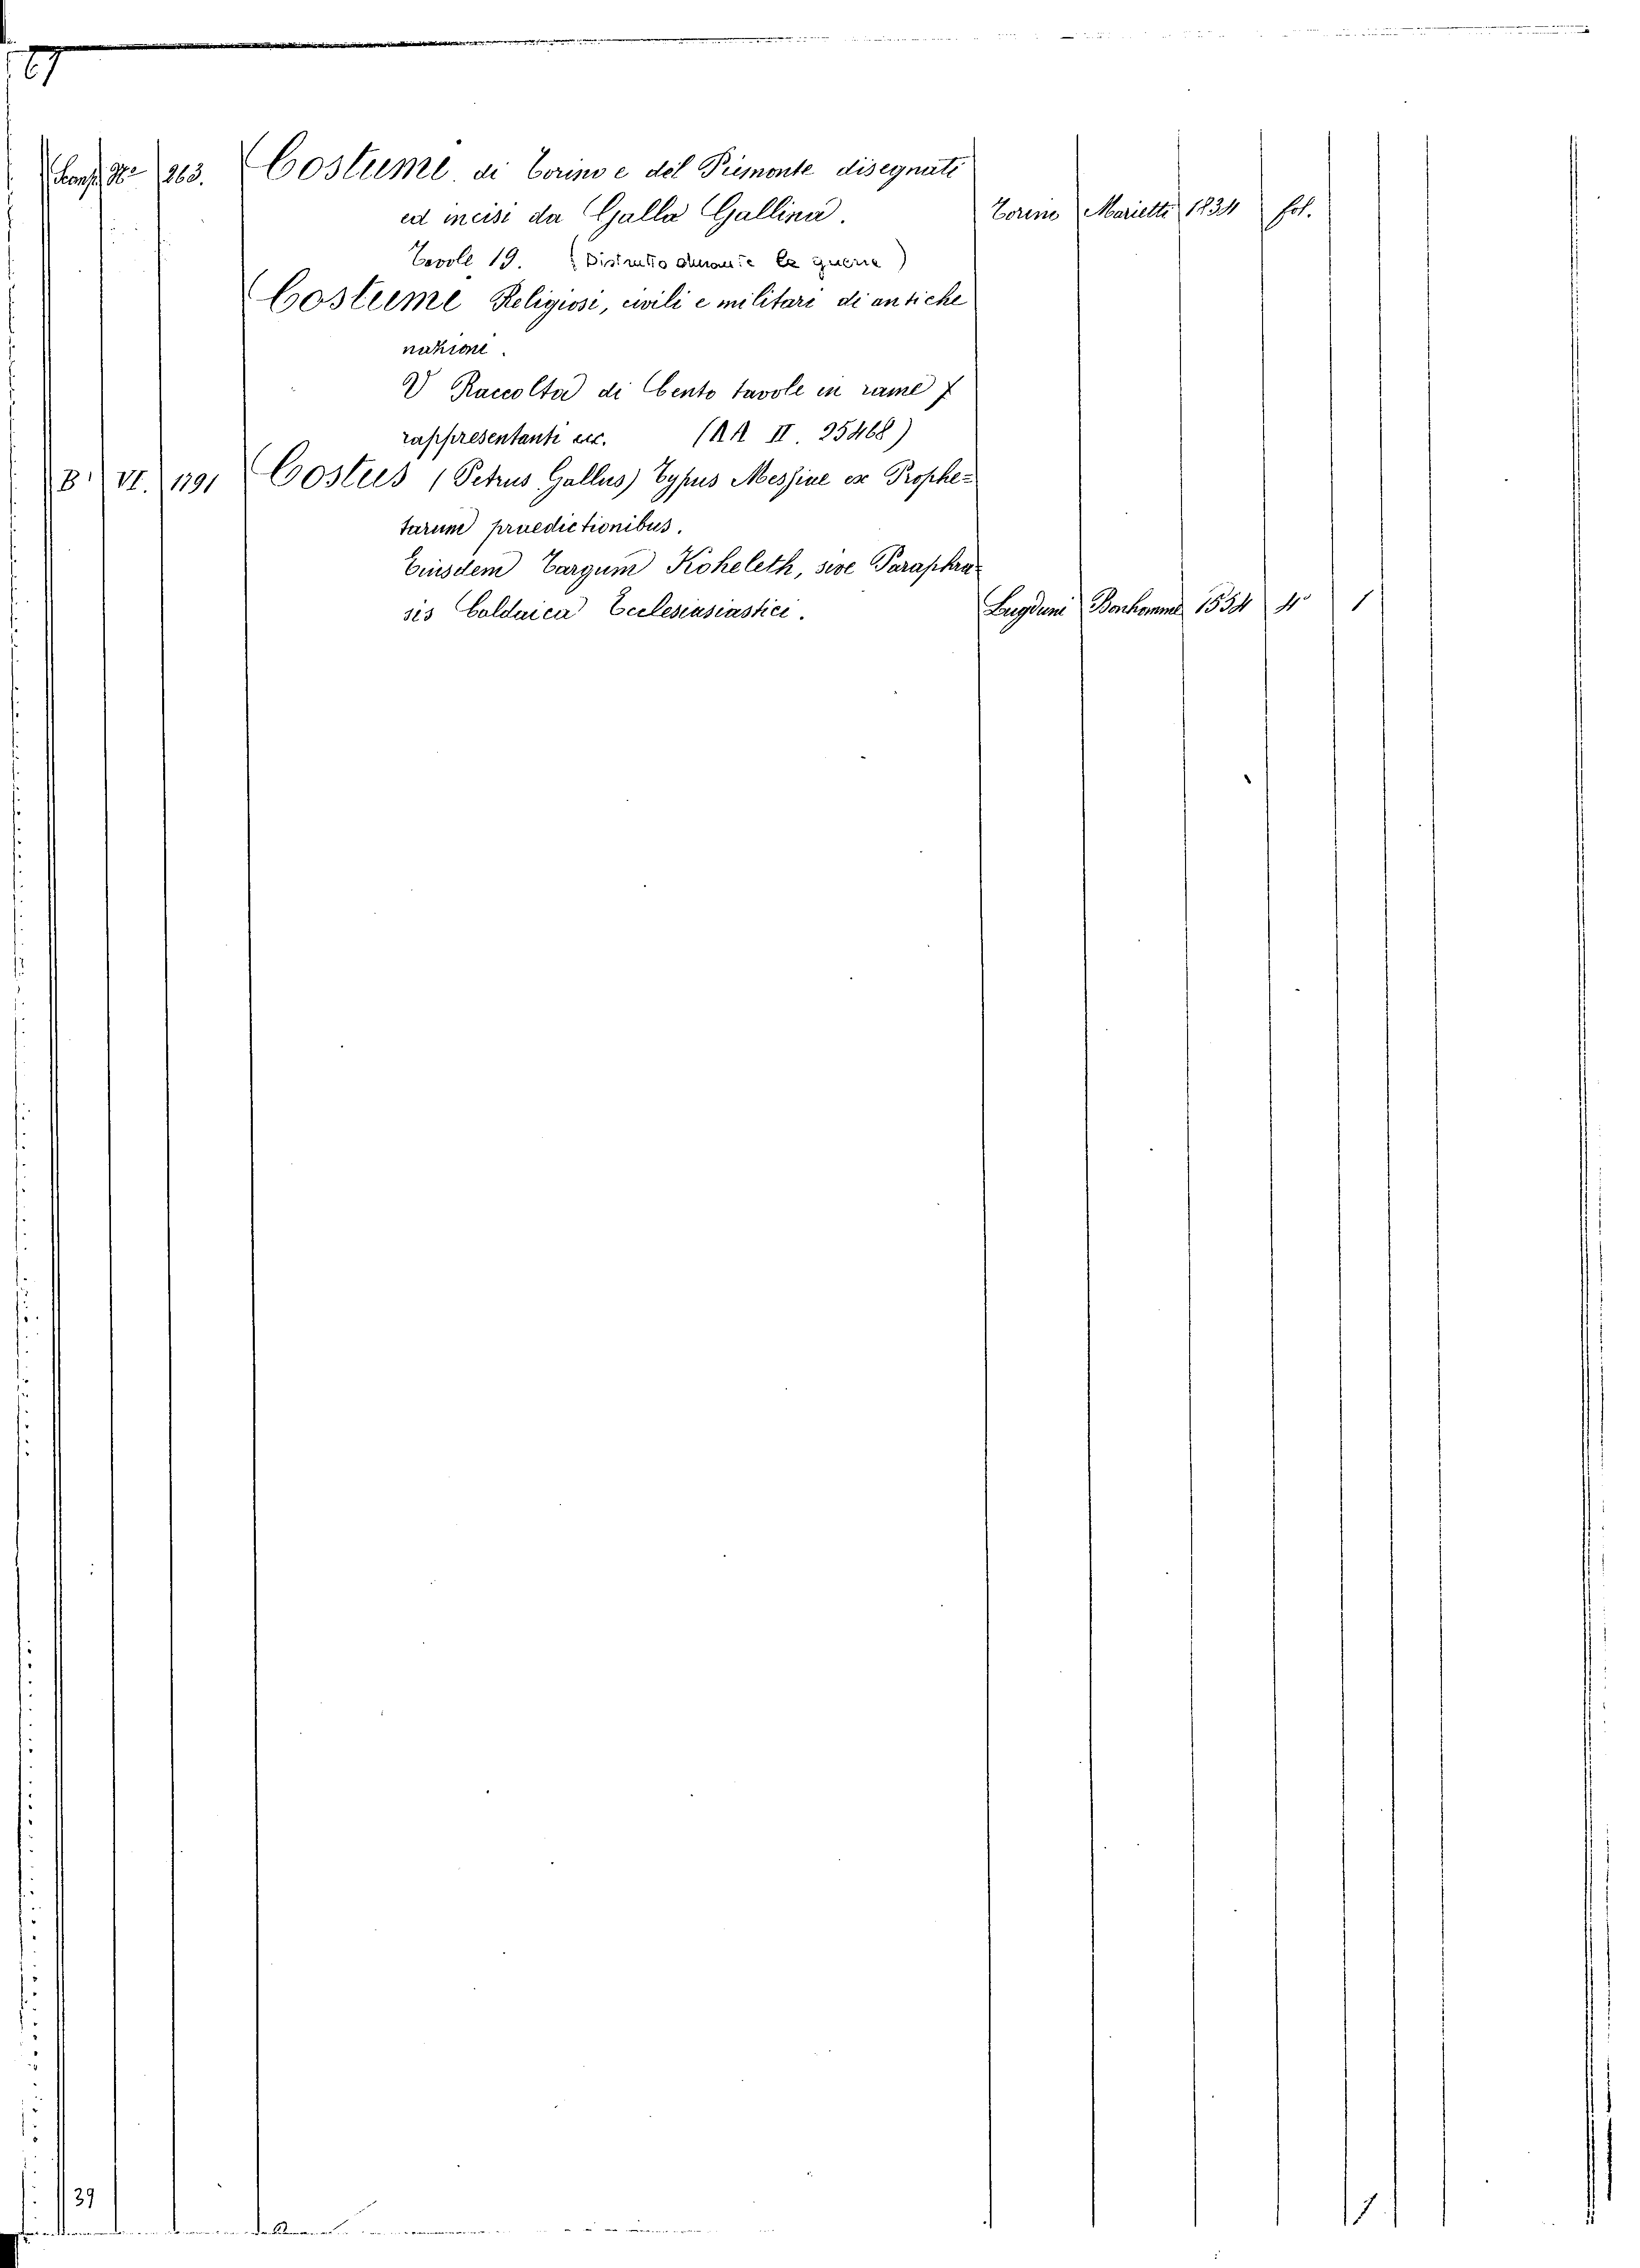 67
Scans. No 263. Costumi di Torino e del Piemonte disegnati
ed incisi da Galla Gallina. Torino Marietti 1834 fol.
Tavole 19. (Distrutto durante la guerra)
Costumi Religiosi, civili e militari di antiche
nazioni.
V Raccolta di Cento tavole in rame
rappresentanti ecc. (AA II. 25468)
B. VI. 1791 Costus (Petrus Gallus) Typus Messiae ex Prophe=
tarum praedictionibus.
Eiusdem Targum Koheleth, sive Paraphra-
sis Caldaica Ecclesiasiastici. Lugduni Bonhomme 1554 4° 1
39
1